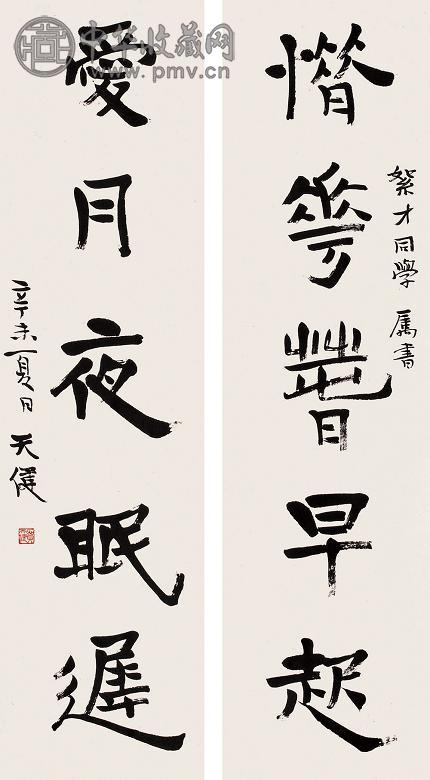 中华收藏网
www.pmv.cn
絜才同學 屬書
惜華萅早起
愛月夜眠遲
辛未夏日 天健